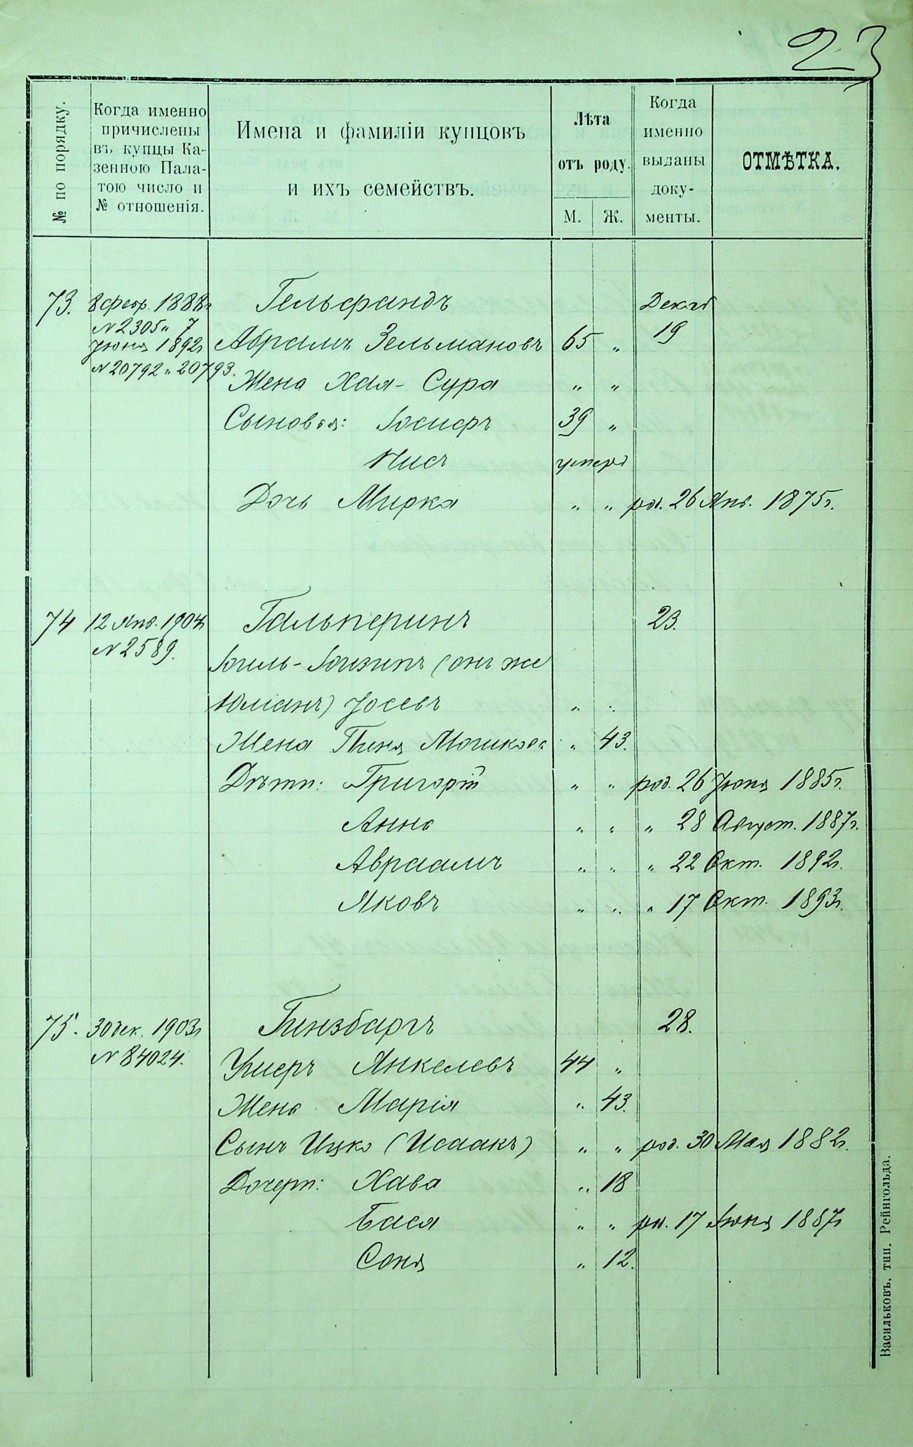 23
№ по порядку.
Когда именно
причислены
въ купцы Ка-
зенною Пала-
тою число и
№ отношенія.
Имена и фамиліи купцовъ
и ихъ семействъ.
Лѣта
отъ роду.
М. Ж.
Когда
именно
выданы
доку-
менты.
ОТМѢТКА.
73. 8 февр. 1888г Гельфандъ Декаб
№ 2305 „ 7
Іюня 1892г Абрамъ Зельмановъ 65 „ 19
№ 20792 „ 20793. Жена Хая-Сура „ „
Сыновья: Іосифъ 39 „
умеръ
Дочь Мирка „ „ род. 26 Янв. 1875г.
74 12 Янв. 1904г Гальперинъ 23.
№ 2589.
(онъ же
Юліанъ) Іосевъ „ „
Жена Пиня „ 43.
Дѣти: Григорій „ „ род. 26 Іюня 1885г.
Анна „ „ „ 28 Август. 1887г.
Авраамъ „ „ „ 22 Окт. 1892г.
Яковъ „ „ „ 17 Окт. 1893г.
75. 30 дек. 1903г Гинзбаргъ 28.
№ 84024. Ушеръ Янкелевъ 44 „
Жена Марія „ 43.
Сынъ Ицко (Исаакъ) „ „ род. 30 Мая 1882г.
Дочери: Хава „ 18
Бася „ „ род. 17 Іюня 1887г
Соня „ 12.
Васильковъ, тип. Рейнгольда.